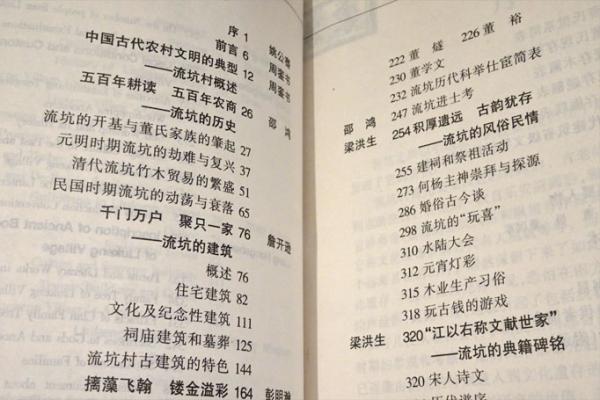 序 1 姚公骞
前言 6 周銮书
中国古代农村文明的典型 12 周銮书
——流坑村概述
五百年耕读 五百年农商 26 邵鸿
——流坑的历史
流坑的开基与董氏家族的肇起 27
元明时期流坑的劫难与复兴 37
清代流坑竹木贸易的繁盛 51
民国时期流坑的动荡与衰落 65
千门万户 聚只一家 76 詹开逊
——流坑的建筑
概述 76
住宅建筑 82
文化及纪念性建筑 111
祠庙建筑和墓葬 125
流坑村古建筑的特色 144
摛藻飞翰 镂金溢彩 164
222 董燧 226 董裕
230 董学文
232 流坑历代科举仕宦简表
邵鸿 247 流坑进士考
梁洪生 254 积厚遗远 古韵犹存
——流坑的风俗民情
255 建祠和祭祖活动
273 何杨主神崇拜与探源
286 婚俗古今谈
298 流坑的“玩喜”
310 水陆大会
312 元宵灯彩
315 木业生产习俗
318 玩古钱的游戏
梁洪生 320 “江以右称文献世家”
——流坑的典籍碑铭
320 宋人诗文